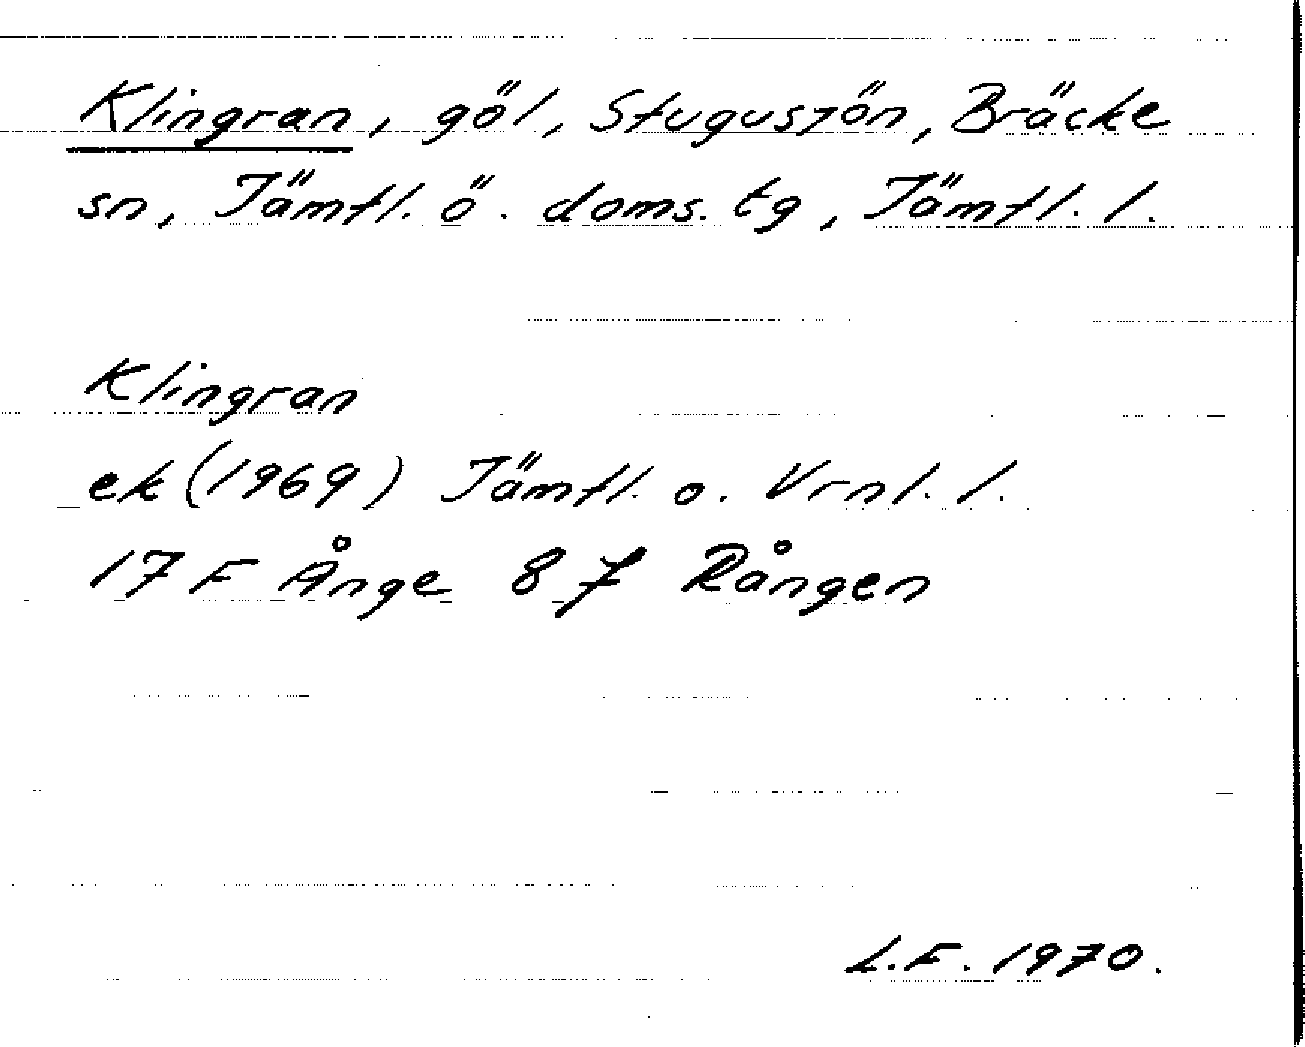 Klingran, göl, Stugusjön, Bräcke
sn, Jämtl. ö. doms. tg, Jämtl. l.
Klingran
ek (1969) Jämtl. o. Vrnl. l.
17 F Ånge 8 f Rången
L.F. 1970.